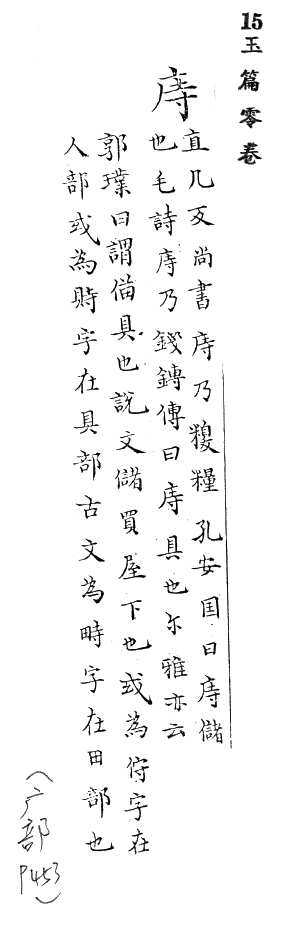 15玉篇零卷
庤
直几反尚書庤乃糗糧孔安国曰庤儲
也毛詩庤乃錢鎛傳曰庤具也尓雅亦云
郭璞曰謂偫具也說文儲買屋下也或為偫字在
人部或為䝰字在具部古文為畤字在田部也
(广部
P453)